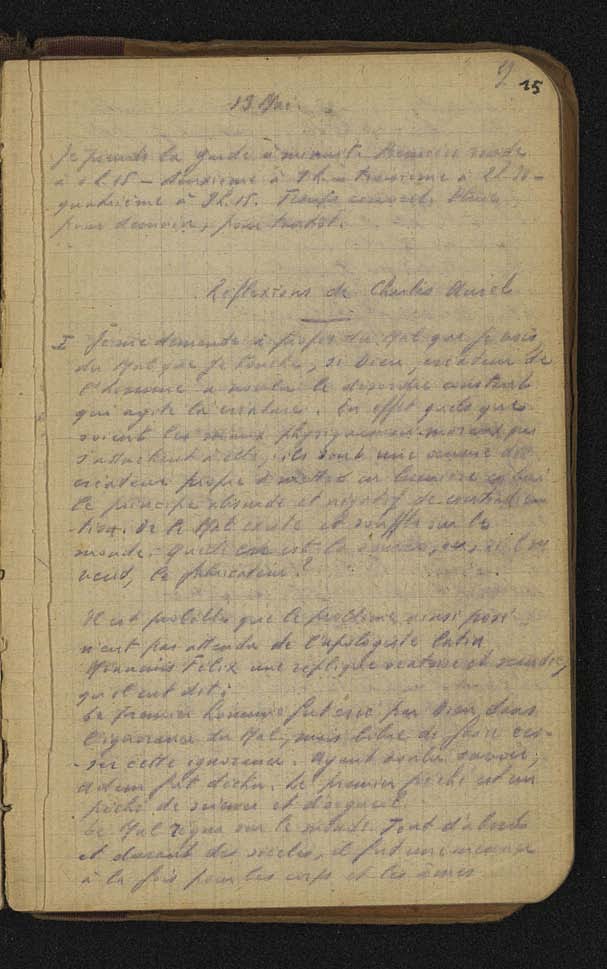 15
13 Mai
Je prends la garde à minuit. Première ronde
à 1h.15 — deuxième à — troisième à 2h.30 —
quatrième à 3h.15. Temps
pour demain,
Réflexions de Charles
I Je me demande à propos du Mal que je vois,
du Mal que je touche, si Dieu, créateur de
l'homme a voulu le désordre constant
qui agite la créature. En effet quels que
soient les maux physiques ou moraux qui
s'attachent à elle, ils sont une œuvre du
créateur propre à mettre en lumière
le principe absurde et négatif de
-tion. Or le Mal existe et souffle sur le
monde. Quelle en est la source, ou, si l'on
veut, le fabricateur?
Il est probable que le problème ainsi posé
n'eut pas attendu de l'apologiste latin
Minucius Félix une réplique
qu'il eut dit:
Le premier homme fut créé par Dieu dans
l'ignorance du Mal, mais libre de faire ces-
-ser cette ignorance. Ayant voulu savoir,
Adam fut déchu. Le premier péché est un
péché de science et d'orgueil.
Le Mal régna sur le monde. Tout d'abord
et durant des siècles, il fut une
à la fois pour les corps et les âmes